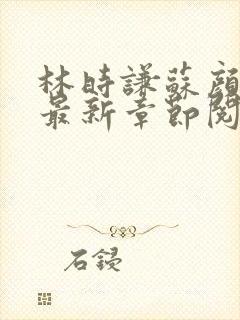 林時謙蘇顏
最新章節閱
石鋟